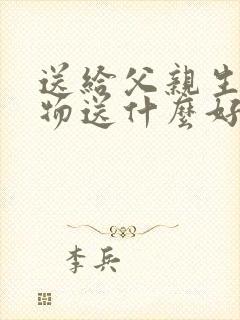 送給父親生
物送什麼好
李兵